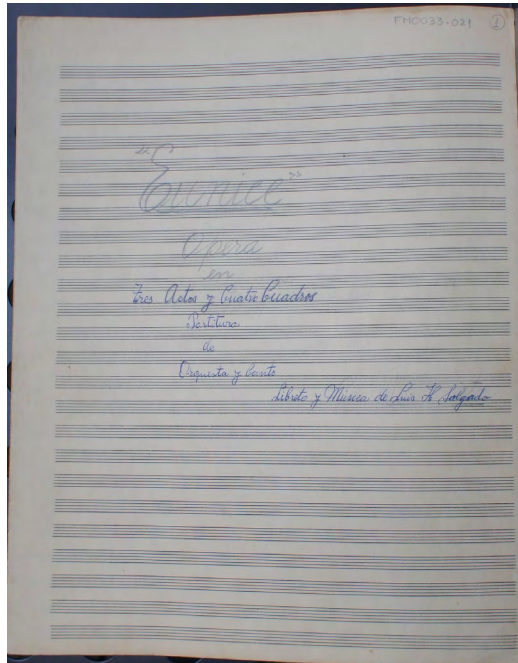 FM0033-021 1
"Eunice"
Opera
en
Tres Actos y Cuatro Cuadros
Partitura
de
Orquesta y Canto
Libreto y Música de Luis H. Salgado